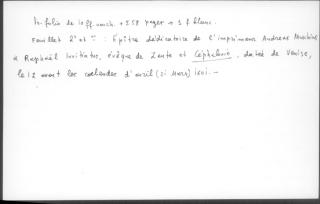 In-folio de 10 ff. numch. + 258 pages + 1 f. blanc.
Feuillet 2º et : Épître dédicatoire de l'imprimeur Andreas
à Raphaël évêque de Zante et Céphalonie, datée de Venise,
le 12 avant les calendes d'avril (21 Mars) 1601. —